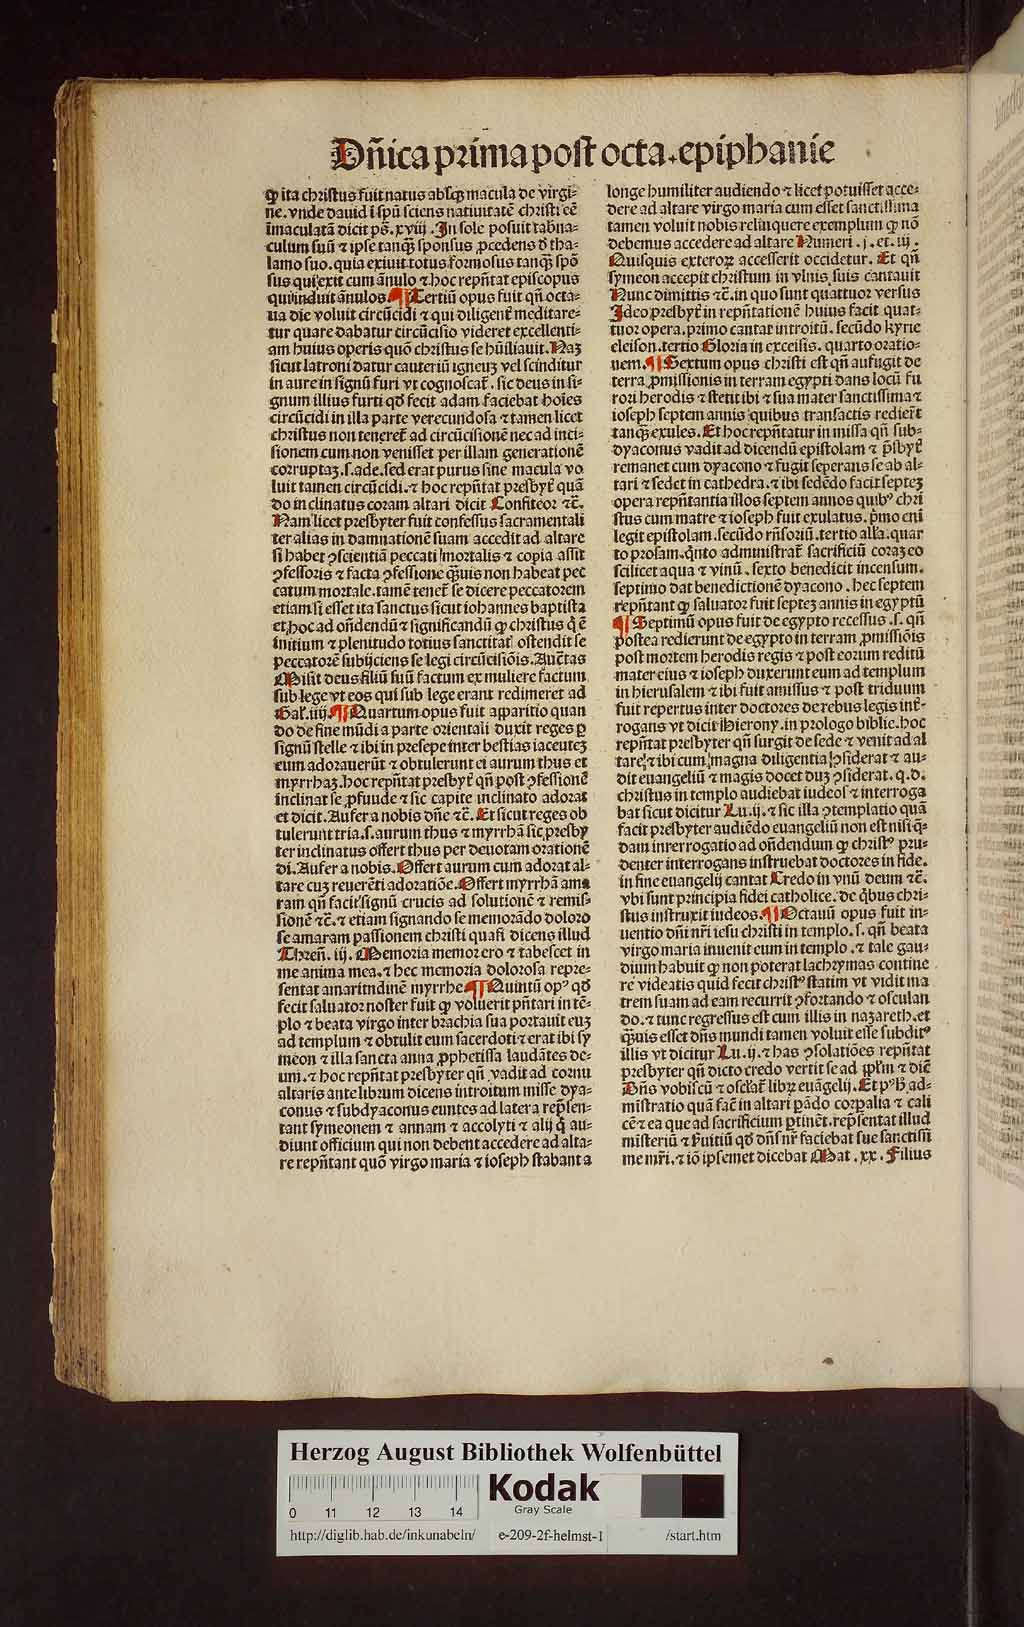 Dn̄ica prima post octa. epiphanie
ꝙ ita christus fuit natus absqꝫ macula de virgi⸗
ne. vnde dauid ī spū sciens natiuitatē christi eē
īmaculatā dicit ps̄. xviij. In sole posuit taƀna⸗
culum suū ⁊ ipse tanqꝫ sponsus ꝓcedens d̄ tha⸗
lamo suo. quia exiuit totus formosus tanqꝫ spō
sus qui exit cum ānulo ⁊ hoc repn̄tat episcopus
qui induit ānulos ¶ Tertiū opus fuit qn̄ octa⸗
ua die voluit circūcidi ⁊ qui diligent̄ meditare⸗
tur quare dabatur circūcisio videret excellenti⸗
am huius operis quō christus se hūiliauit. Naꝫ
sicut latroni datur cauteriū igneuꝫ vel scinditur
in aure in signū furi vt cognoscat̄. sic deus in si⸗
gnum illius furti qd̄ fecit adam faciebat hoīes
circūcidi in illa parte verecundosa ⁊ tamen licet
christus non teneret̄ ad circūcisionē nec ad inci⸗
sionem cum non venisset per illam generationē
corruptaꝫ .s. ade. sed erat purus sine macula vo
luit tamen circūcidi. ⁊ hoc repn̄tat presbyt̄ quā
do inclinatus coram altari dicit Confiteor ⁊c̄.
Nam licet presbyter fuit confessus sacramentali
ter alias in damnationē suam accedit ad altare
si habet ꝯscientiā peccati mortalis ⁊ copia assit
ꝯfessoris ⁊ facta ꝯfessione qꝫuis non habeat pec
catum mortale. tamē tenet̄ se dicere peccatorem
etiam si esset ita sanctus sicut iohannes baptista
et hoc ad on̄dendū ⁊ significandū ꝙ christus q̄ ē
initium ⁊ plenitudo totius sanctitat̄ ostendit se
peccatorē subijciens se legi circūcisiōis. Auc̄tas
Misit deus filiū suū factum ex muliere factum
sub lege vt eos qui sub lege erant redimeret ad
Gal̄. iiij. ¶ Quartum opus fuit apparitio quan
do de fine mūdi a parte orientali duxit reges ꝑ
signū stelle ⁊ ibi in presepe inter bestias iacenteꝫ
eum adorauerūt ⁊ obtulerunt ei aurum thus et
myrrhaꝫ. hoc repn̄tat presbyt̄ qn̄ post ꝯfessionē
inclinat se ꝓfunde ⁊ sic capite inclinato adorat
et dicit. Aufer a nobis dn̄e ⁊c̄. Et sicut reges ob
tulerunt tria .s. aurum thus ⁊ myrrhā sic presby
ter inclinatus offert thus per deuotam orationē
di. Aufer a nobis. Offert aurum cum adorat al⸗
tare cuꝫ reuerēti adoratiōe. Offert myrrhā ama
ram qn̄ facit signū crucis ad solutionē ⁊ remis⸗
sionē ⁊c̄. ⁊ etiam signando se memorādo doloro
se amaram passionem christi quasi dicens illud
Thren̄. iij. Memoria memor ero ⁊ tabescet in
me anima mea. ⁊ hec memoria dolorosa repre⸗
sentat amaritudinē myrrhe ¶ Quintū opꝰ qd̄
fecit saluator noster fuit ꝙ voluerit pn̄tari in tē⸗
plo ⁊ beata virgo inter brachia sua portauit euꝫ
ad templum ⁊ obtulit eum sacerdoti ⁊ erat ibi sy
meon ⁊ illa sancta anna ꝓphetissa laudātes de⸗
um. ⁊ hoc repn̄tat presbyter qn̄ vadit ad cornu
altaris ante librum dicens introitum misse dya⸗
conus ⁊ subdyaconus euntes ad latera repn̄sen⸗
tant symeonem ⁊ annam ⁊ accolyti ⁊ alij q̄ au⸗
diunt officium qui non debent accedere ad alta⸗
re repn̄tant quō virgo maria ⁊ ioseph stabant a
longe humiliter audiendo ⁊ licet potuisset acce⸗
dere ad altare virgo maria cum esset sanctissima
tamen voluit nobis relinquere exemplum ꝙ nō
debemus accedere ad altare Numeri. j. et. iij.
Quisquis exteroꝝ accesserit occidetur. Et qn̄
symeon accepit christum in vlnis suis cantauit
Nunc dimittis ⁊c̄. in quo sunt quattuor versus
Ideo presbyt̄ in repn̄tationē huius facit quat⸗
tuor opera. primo cantat introitū. secūdo kyrie
eleison. tertio Gloria in excelsis. quarto oratio⸗
nem. ¶ Sextum opus christi est qn̄ aufugit de
terra ꝓmissionis in terram egypti dans locū fu
rori herodis ⁊ stetit ibi ⁊ sua mater sanctissima ⁊
ioseph septem annis quibus transactis redier̄t
tanqꝫ exules. Et hoc repn̄tatur in missa qn̄ sub⸗
dyaconus vadit ad dicendū epistolam ⁊ p̄sbyt̄
remanet cum dyacono ⁊ fugit seperans se ab al⸗
tari ⁊ sedet in cathedra. ⁊ ibi sedēdo facit septeꝫ
opera repn̄tantia illos septem annos quibꝰ chri
stus cum matre ⁊ ioseph fuit exulatus. p̄mo eni
legit epistolam. secūdo rn̄soriū. tertio all̄a. quar
to prosam. q̄nto administrat̄ sacrificiū coraꝫ eo
scilicet aqua ⁊ vinū. sexto benedicit incensum.
septimo dat benedictionē dyacono. hec septem
repn̄tant ꝙ saluator fuit septeꝫ annis in egyptū
¶ Septimū opus fuit de egypto recessus .s. qn̄
postea redierunt de egypto in terram ꝓmissiōis
post mortem herodis regis ⁊ post eorum reditū
mater eius ⁊ ioseph duxerunt eum ad templum
in hierusalem ⁊ ibi fuit amissus ⁊ post triduum
fuit repertus inter doctores de rebus legis int̄⸗
rogans vt dicit Hierony. in prologo biblie. hoc
repn̄tat presbyter qn̄ surgit de sede ⁊ venit ad al
tare ⁊ ibi cum magna diligentia ꝯsiderat ⁊ au⸗
dit euangeliū ⁊ magis docet duꝫ ꝯsiderat. q. d.
christus in templo audiebat iudeos ⁊ interroga
bat sicut dicitur Lu. ij. ⁊ sic illa ꝯtemplatio quā
facit presbyter audiēdo euangeliū non est nisi q̄⸗
dam interrogatio ad on̄dendum ꝙ christꝰ pru⸗
denter interrogans instruebat doctores in fide.
in fine euangelij cantat Credo in vnū deum ⁊c̄.
vbi sunt principia fidei catholice. de q̄bus chri⸗
stus instruxit iudeos. ¶ Octauū opus fuit in⸗
uentio dn̄i nr̄i iesu christi in templo .s. qn̄ beata
virgo maria inuenit eum in templo. ⁊ tale gau⸗
dium habuit ꝙ non poterat lachrymas contine
re videatis quid fecit christꝰ statim vt vidit ma
trem suam ad eam recurrit ꝯfortando ⁊ osculan
do. ⁊ tunc regressus est cum illis in nazareth. et
qꝫuis esset dn̄s mundi tamen voluit esse subditꝰ
illis vt dicitur Lu. ij. ⁊ has ꝯsolatiōes repn̄tat
presbyter qn̄ dicto credo vertit se ad ppl̄m ⁊ dic̄
Dn̄s vobiscū ⁊ osculat̄ libꝝ euāgelij. Et pꝰ ħ ad⸗
mistratio quā fac̄ in altari pādo corꝑalia ⁊ cali
cē ⁊ ea que ad sacrificium ꝑtinēt. rep̄sentat illud
misteriū ⁊ ẜuitiū qd̄ dn̄s nr̄ faciebat sue sanctissi
me mr̄i. ⁊ iō ipsemet dicebat Mat. xx. Filius
Herzog August Bibliothek Wolfenbüttel
0 11 12 13 14
Kodak
Gray Scale
http://diglib.hab.de/inkunabeln/ e-209-2f-helmst-1 /start.htm